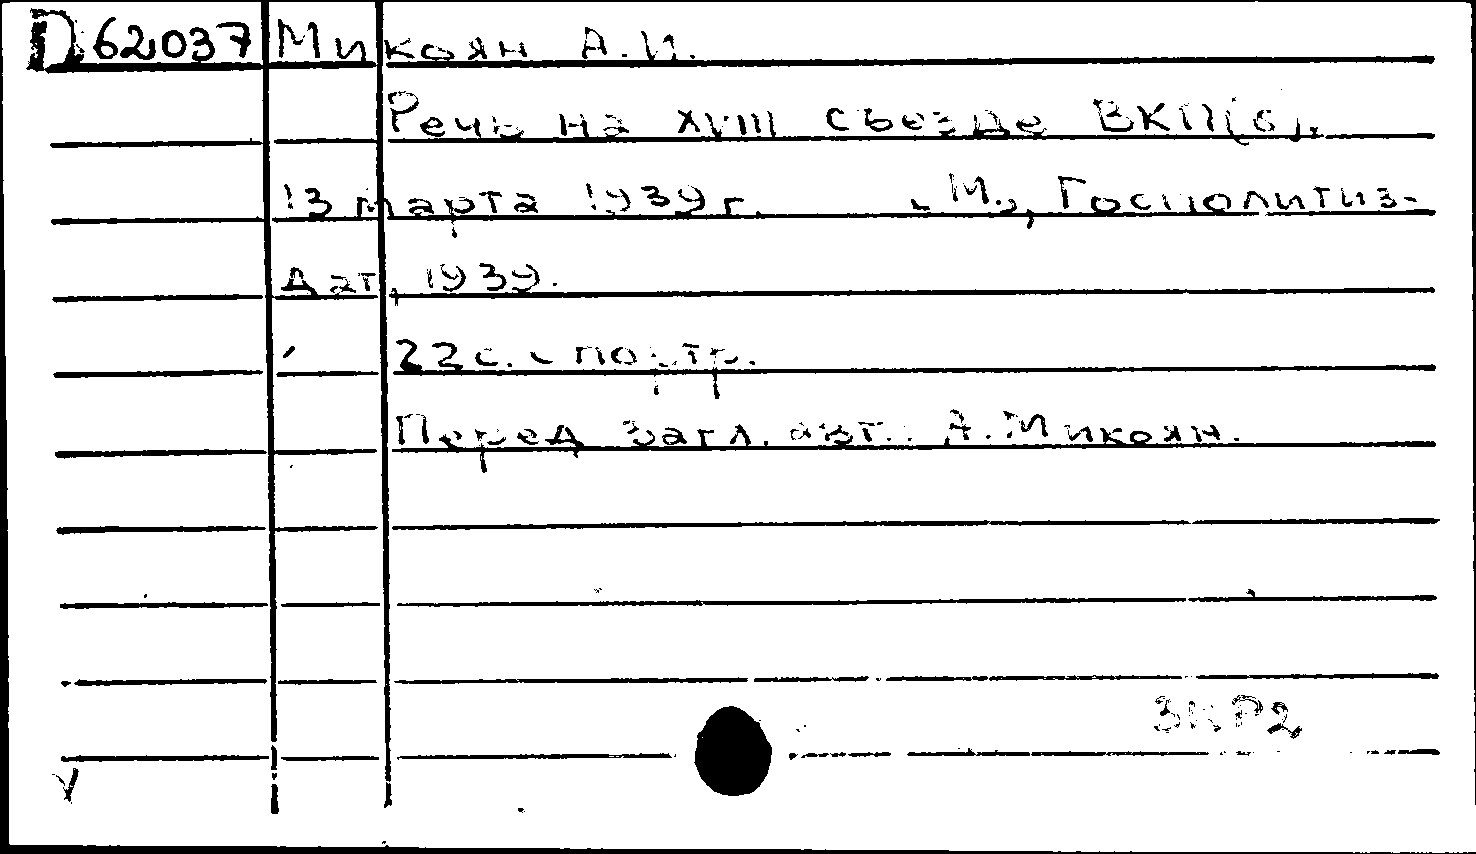 П62037 Микоян А.И.
Речь на XVIII съезде ВКП(б).
13 марта 1939г. М., Госполитиз-
дат, 1939.
22с. с портр.
Перед загл. авт.: А. Микоян.
3КР2